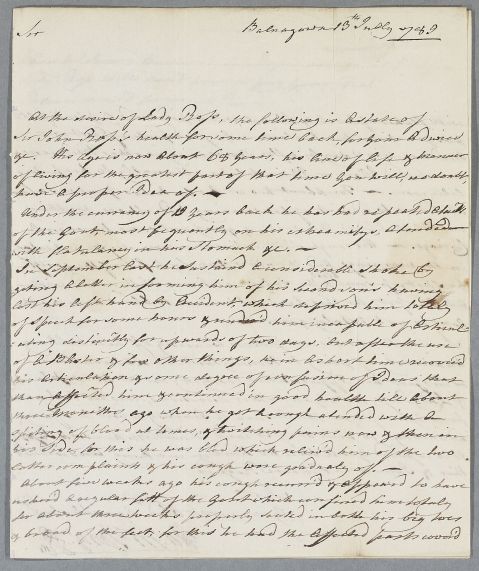 Sir
Balnagown 13th July 1789
At the desire of Lady Ross, the following is a state of
Sir John Ross's health for some time back, for your Advice
&c. His Age is now about 68 years, his line of Life & manner
of living for the greatest part of that time you will, no doubt,
have a proper Idea of. —
Under the currency of 19 years back he has had repeated Attacks
of the Gout, most frequently on his extreamitys, Attended
with flatulency in his Stomach &c. —
In September last he sustaind a considerable Shake by
geting a Letter informing him of his second son's having
lost his left hand by Accident, which deprived him totaly
of Speech for some hours & rendred him incapable of Articul-
-ating distinctly for upwards of two days, but after the use
of a Blister & few other things, he in a short time recovered
his Articulation & some degree of confusion of Ideas that
then affected him & continued in good health till about
three Months ago when he got a cough atended with a
spiting of blood at times, & twitching pains now & then in
his side, for this he was bled which relieved him of the two
latter complaints & his cough wore gradualy of. —
About five weeks ago his cough recurd & appeared to have
ushered a regular fitt of the Gout which confined him totaly
for about three weeks properly seated in both his big toes
& broad of the feet, for this he had the affected parts coverd